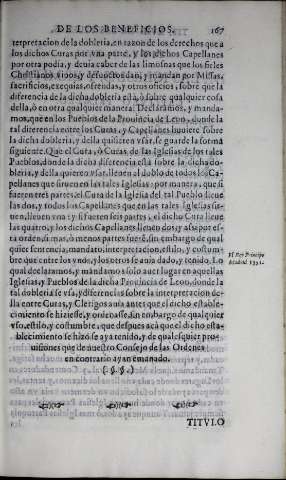 DE LOS BENEFICIOS. 167
terpretacion de la dobleria, en razon de los derechos que a
los dichos Curas por vna parte, y los dichos Capellanes
por otra podia, y deuia caber de las limosnas que los fieles
Christianos viuos, y defunctos dan, y mandan por Missas,
sacrificios, exequias, ofrendas, y otros oficios, sobre que la
diferencia de la dicha dobleria está, ò sobre qualquier cosa
della, ò en otra qualquier manera. Declaramos, y manda-
mos, que en los Pueblos de la Prouincia de Leon, donde la
tal diferencia entre los Curas, y Capellanes huuiere sobre
la dicha dobleria, y della quisieren vsar, se guarde la forma
siguiente. Que el Cura, ò Curas de las Iglesias de los tales
Pueblos, donde la dicha diferencia està sobre la dicha do-
bleria, y della quieren vsar, lleuen al doblo de todos los Ca-
pellanes que siruen en las tales Iglesias: por manera, que si
fueren tres partes, el Cura de la Iglesia del tal Pueblo lleue
las dos, y todos los Capellanes que en las tales Iglesias sir-
uen, lleuen vna: y si fueren seis partes, el dicho Cura lleue
las quatro, y los dichos Capellanes lleuen dos; y assi por es-
ta orden, si mas, ò menos partes fuere, sin embargo de qual
quier sentencia, mandato, interpretacion, estilo, y costum-
bre que entre los vnos, y los otros se aya dado, y tenido. Lo
qual declaramos, y mandamos solo auer lugar en aquellas
Iglesias, y Pueblos de la dicha Prouincia de Leon, donde la
tal dobleria se vsa, y diferencias sobre la interpretacion de-
lla entre Curas, y Clerigos auia antes que el dicho estable-
cimiento se hiziesse, y ordenasse, sin embargo de qualquier
vso, estilo, y costumbre, que despues acà que el dicho esta-
blecimiento se hizo se aya tenido, y de qualesquier pro-
uisiones que de nuestro Consejo de las Ordenes
en contrario ayan emanado.
(.§.§.)
El Rey Principe
Madrid 1551.
TITVLO